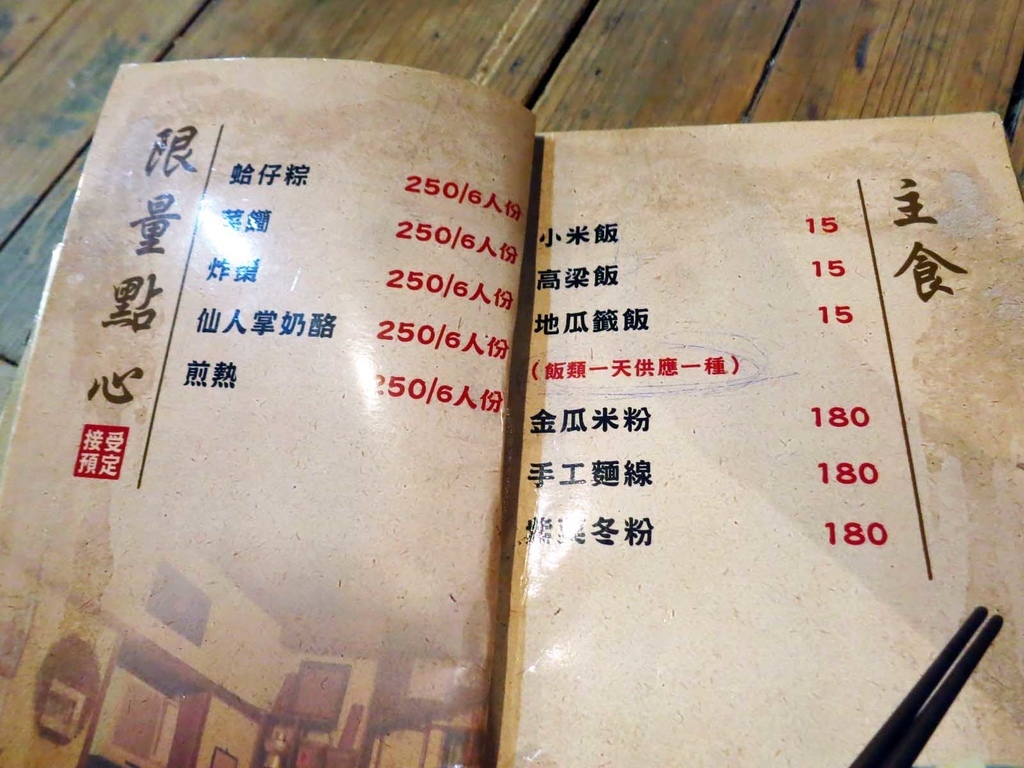 限量點心
接受預定
蛤仔粽 250/6人份
250/6人份
炸棗 250/6人份
仙人掌奶酪 250/6人份
煎熟 250/6人份
主食
小米飯 15
高粱飯 15
地瓜籤飯 15
(飯類一天供應一種)
金瓜米粉 180
手工麵線 180
冬粉 180